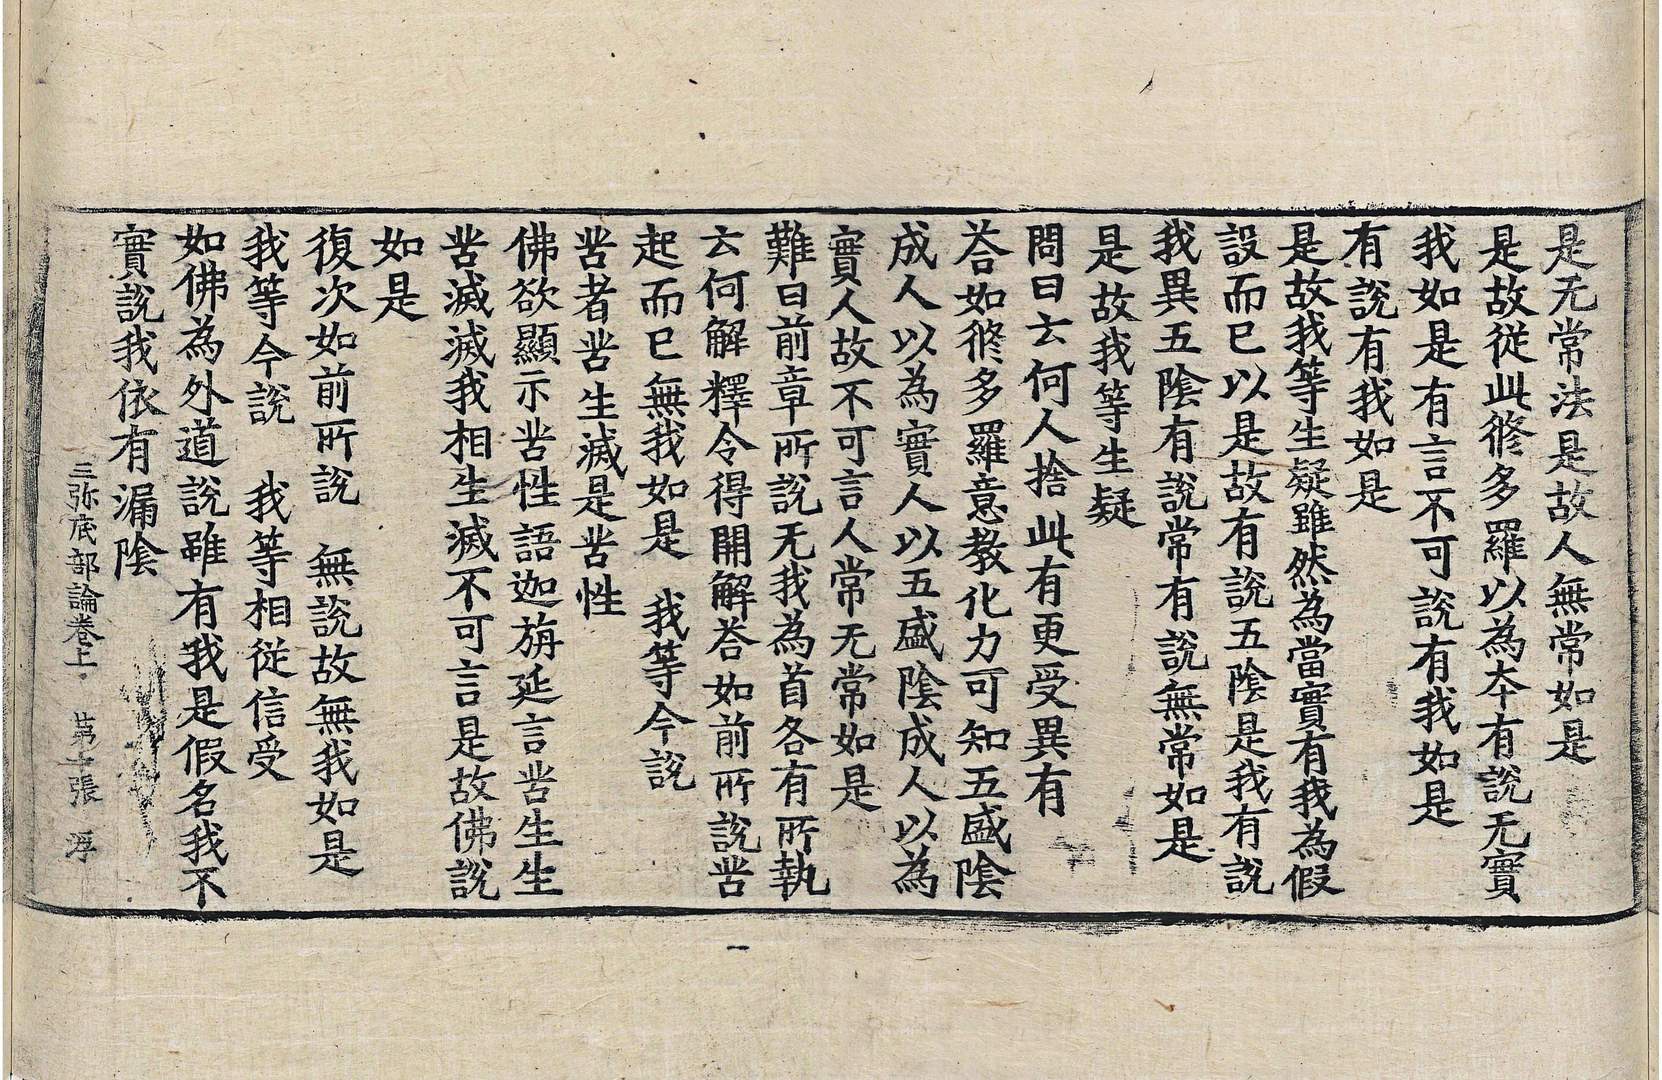 是无常法是故人無常如是
是故從此修多羅以為本有說无實
我如是有言不可說有我如是
有說有我如是
是故我等生疑雖然為當實有我為假
設而已以是故有說五陰是我有說
我異五陰有說常有說無常如是
是故我等生疑
問曰云何人捨此有更受異有
荅如修多羅意教化力可知五盛陰
成人以為實人以五盛陰成人以為
實人故不可言人常无常如是
難曰前章所說无我為首各有所執
云何解釋令得開解荅如前所說苦
起而已無我如是　我等今說
苦者苦生滅是苦性
佛欲顯示苦性語迦旃延言苦生生
苦滅滅我相生滅不可言是故佛說
如是
復次如前所說　無說故無我如是
我等今說　我等相從信受
如佛為外道說雖有我是假名我不
實說我依有漏陰
三弥底部論卷上　第十張　浮